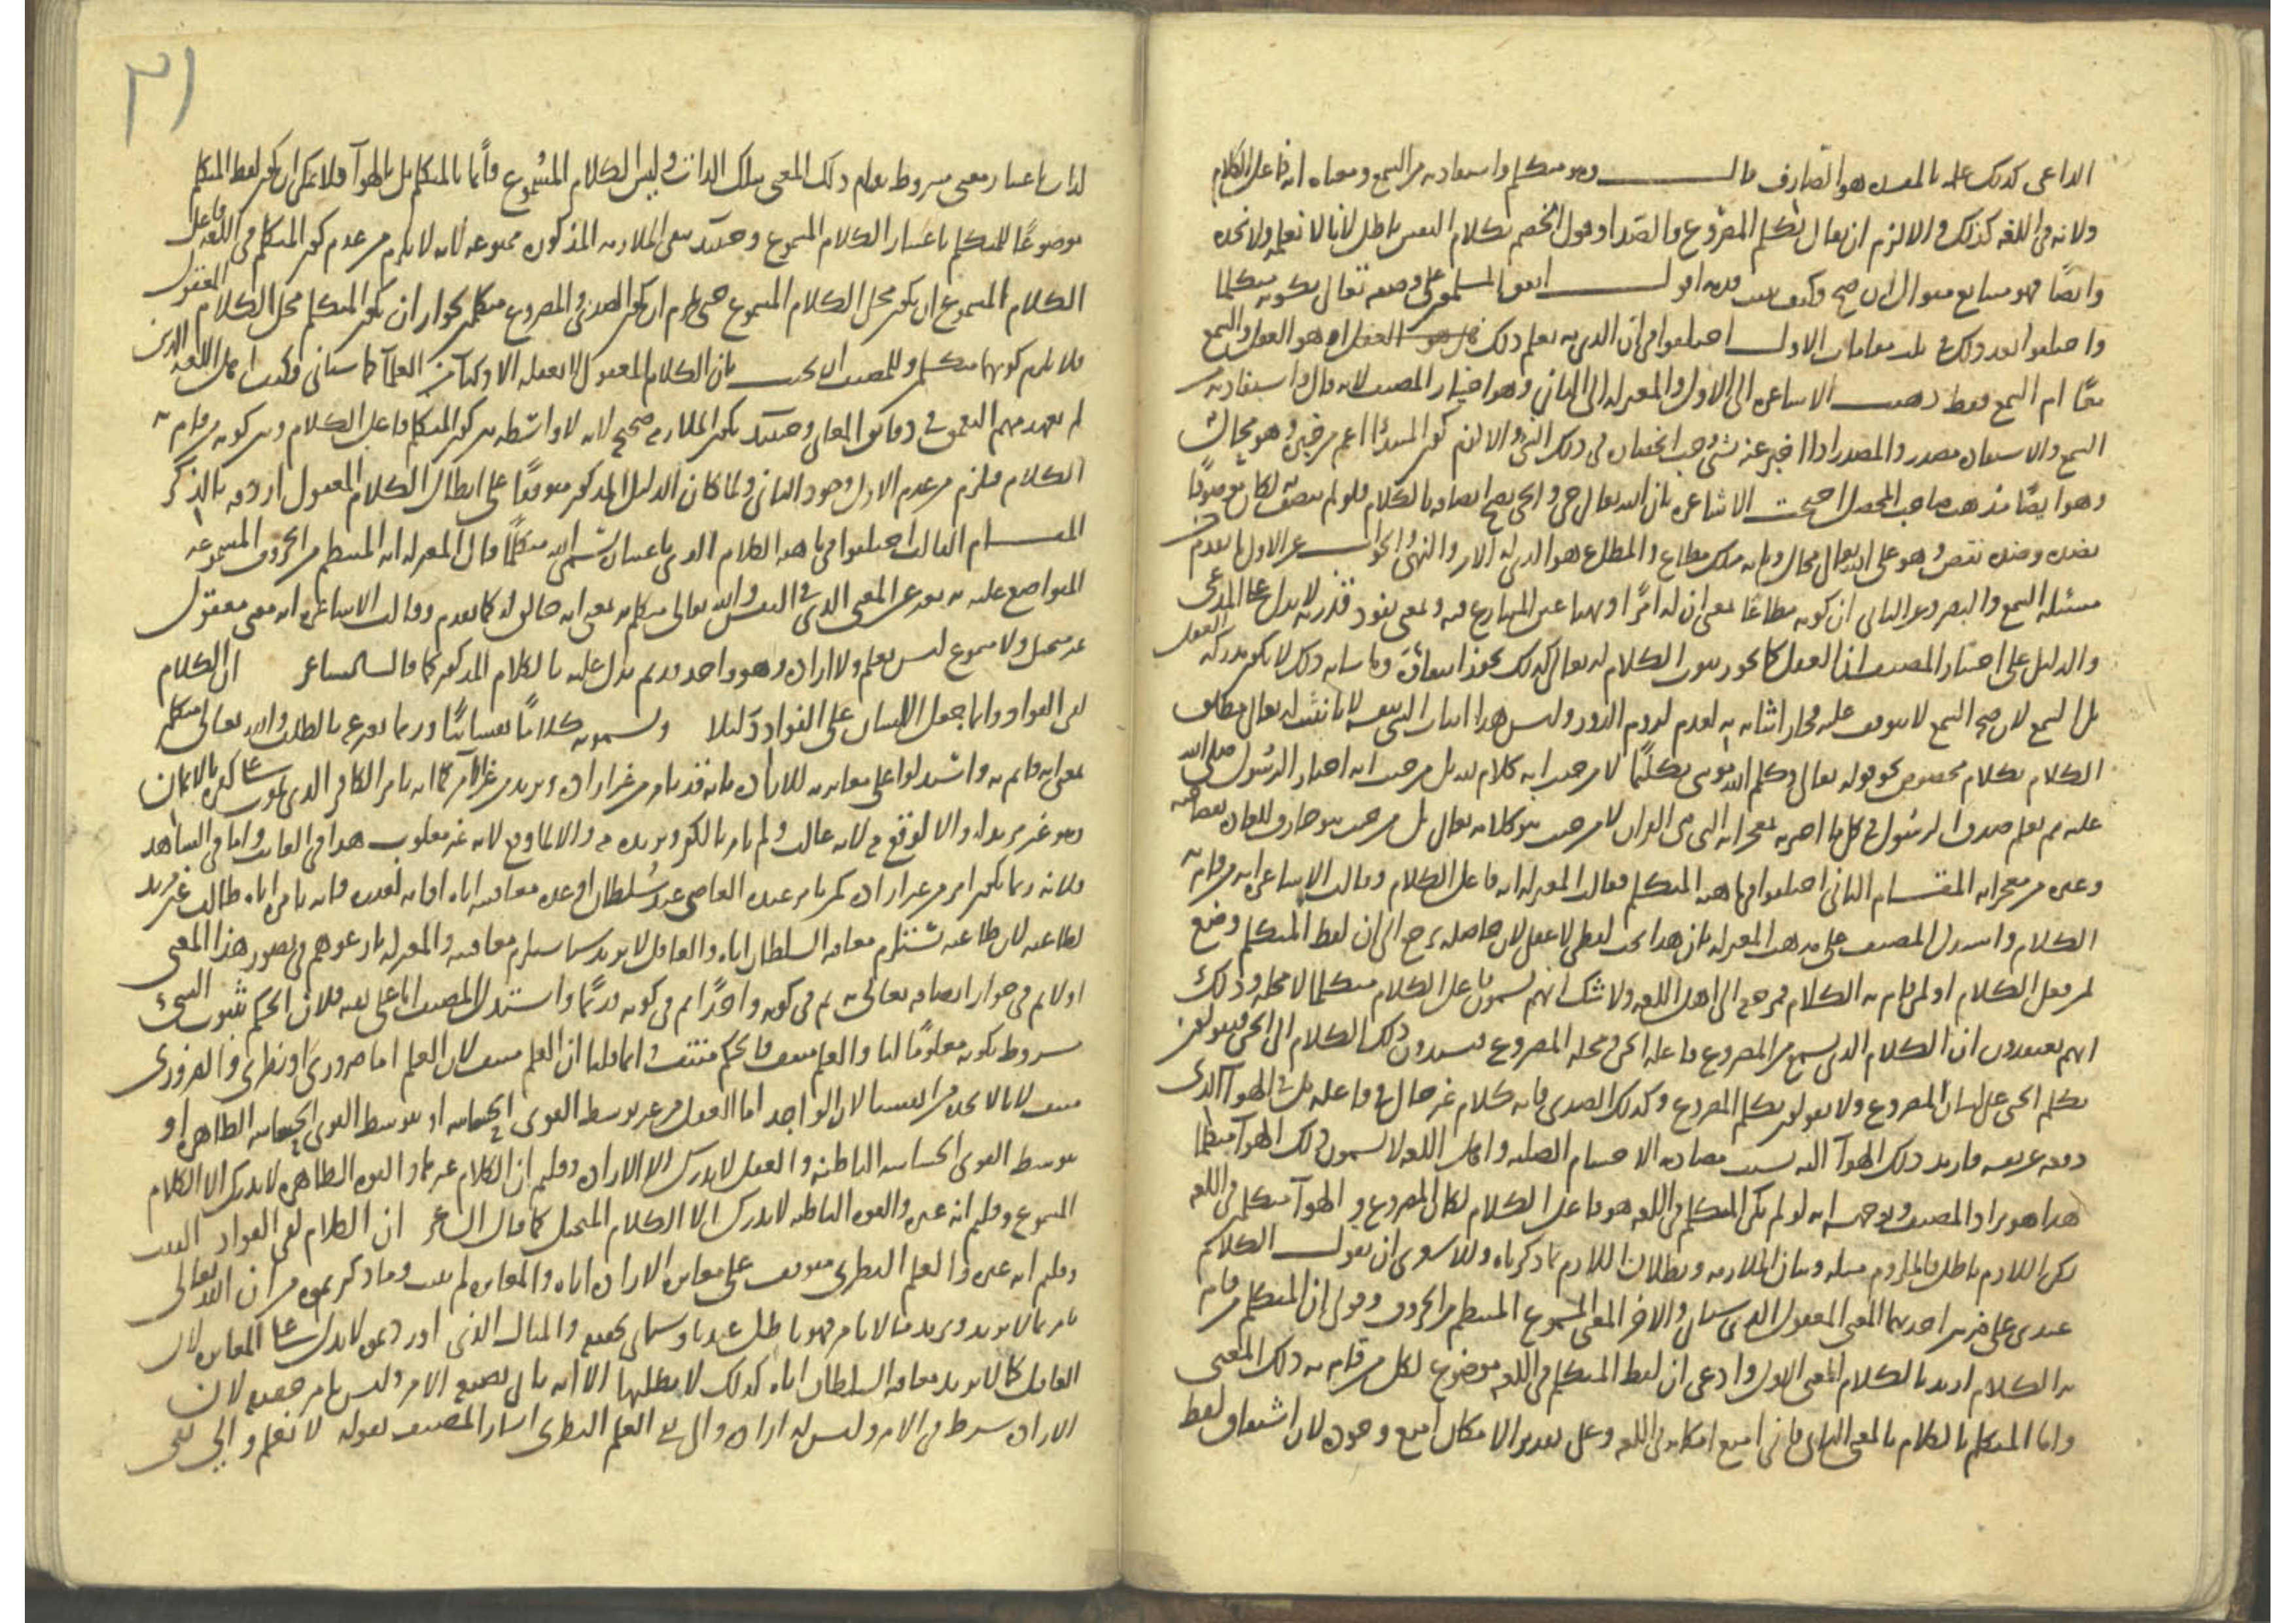 الداعى كذلك علمه بالمفسده هو الصارف قال وهو متكلم واستفادته من السمع ومعناه انه فاعل الكلام
ولانه فى اللغه كذلك والا لزم ان يقال تكلم المصروع والصدا وقول الخصم بكلام النفس باطل لانا لا نعلمه ولا نجده
وايضا فهو اقول اتفق المسلمون على وصفه تعالى بكونه متكلما
واختلفوا بعد ذلك فى ثلث مقامات الاول اختلفوا فى ان الذى به يعلم ذلك هل هو العقل او هو العقل والسمع
معًا ام السمع فقط ذهبت الاشاعره الى الاول والمعتزله الى الثانى وهو اختيار المصنف لانه قال واستفادته من
السمع والاستفاده مصدر والمصدر اذا اخبر عنه بشئ وجب انحصاره فى ذلك الشئ والا لزم كون المبتدا اعم من خبره وهو محال
وهو ايضًا مذهب صاحب المحصل احتجت الاشاعره بان الله تعالى حى والحى يصح اتصافه بالكلام فلو لم يتصف به لكان موصوفًا
بضده وضده نقص وهو على الله تعالى محال وبانه ملك مطاع والمطاع هو الذى له الامر والنهى والجواب عن الاول ما تقدم فى
مسئله السمع والبصر وعن الثانى ان كونه مطاعًا بمعنى ان له امرًا ونهيا عين المتنازع فيه وبمعنى نفوذ قدرته لا يدل على المدعى
والدليل على اختيار المصنف ان العقل كما يجوز ثبوت الكلام له تعالى كذلك يجوز انتفاؤه وما شانه ذلك لا يكون مدركه العقل
بل السمع لان صحه السمع لا يتوقف عليه فجاز اثباته به لعدم لزوم الدور وليس هذا اثبات الشئ بنفسه لانا نثبت له تعالى مطلق
الكلام بكلام مخصوص نحو قوله تعالى وكلم الله موسى تكليمًا لا من حيث انه كلام الله بل من حيث انه اخبار الرسول صلى الله
عليه ثم يعلم صدق الرسول فى كل ما اخبر به بمعجزاته التى هى القران لا من حيث هو كلامه تعالى بل من حيث هو خارق للعاده
وغيره من معجزاته المقام الثانى اختلفوا فى ماهيه المتكلم فقالت المعتزله انه فاعل الكلام وقالت الاشاعره انه من قام به
الكلام واستدل المصنف على مذهب المعتزله بان هذا بحث لفظى لا عقلى لان حاصله يرجع الى ان لفظ المتكلم وضع
لمن فعل الكلام او لمن قام به الكلام فيرجع الى اهل اللغه ولا شك انهم يسمون فاعل الكلام متكلما لا محله وذلك
انهم يعتقدون ان الكلام الذى يسمع من المصروع فاعله الجن ومحله المصروع فيسندون ذلك الكلام الى الجن فيقولون
تكلم الجنى على لسان المصروع ولا يقولون تكلم المصروع وكذلك الصدى فانه كلام غير حال فى فاعله بل فى الهوآ الذى
دفعه عن نفسه فارتد ذلك الهوآ اليه بسبب مصادمه الاجسام الصلبه واهل اللغه لا يسمون ذلك الهوآ متكلما
هذا هو مراد المصنف وتوجيهه انه لو لم يكن المتكلم فى اللغه هو فاعل الكلام لكان المصروع والهوآ متكلمين فى اللغه
لكن اللازم باطل فالملزوم مثله وبيان الملازمه وبطلان اللازم ما ذكرناه وللاشعرى ان يقول الكلام
عندى على ضربين احدهما المعنى المعقول الذى سيأتى والاخر المعنى المسموع المنتظم من الحروف وقولى ان المتكلم من قام
به الكلام اريد بالكلام المعنى الاول وادعى ان لفظ المتكلم فى اللغه موضوع لكل من قام به ذلك المعنى
واما المتكلم بالكلام بالمعنى الثانى فانى امنع امكانه فى اللغه وعلى تقدير الامكان امنع وجوده لان اشتقاق لفظ
٣١
لذات باعتبار معنى مشروط بقيام ذلك المعنى بتلك الذات وليس الكلام المسموع قائما بالمتكلم بل بالهوآ فلا يمكن ان يكون لفظ المتكلم
موضوعًا للمتكلم باعتبار الكلام المسموع وحينئذ تبقى الملازمه المذكوره ممنوعه فانه لا يلزم من عدم كون المتكلم فى اللغه فاعل
الكلام المسموع ان يكون محل الكلام المسموع حتى يلزم ان يكون الصدى والمصروع متكلمين لجواز ان يكون المتكلم محل الكلام المعقول
فلا يلزم كونهما متكلمين وللمصنف ان يجيب بان الكلام المعقول لا يعقله الا الاذكيآء من العلمآ كما سيأتى فكيف اهل اللغه الذين
لم يعهد منهم التعمق فى دقائق المعانى وحينئذ تكون الملازمه صحيحه لانه لا واسطه بين كون المتكلم فاعل الكلام وبين كونه من قام به
الكلام فيلزم من عدم الاول وجود الثانى ولما كان الدليل المذكور موقوفًا على ابطال الكلام المعقول اردفه بالذكر
المقام الثالث اختلفوا فى ماهيه الكلام الذى باعتباره يسمى الله متكلمًا فقال المعتزله انه المنتظم من الحروف المسموعه
المتواضع عليه به يعبر عن المعنى الذى فى النفس والله تعالى متكلم به بمعنى انه خالق له كما تقدم وقالت الاشاعره انه معنى معقول
غير متخيل ولا مسموع ليس بعلم ولا اراده وهو واحد قديم يدل عليه بالكلام المذكور كما قال الشاعر ان الكلام
لفى الفؤاد وانما جعل اللسان على الفؤاد دليلا ويسمونه كلامًا نفسانيًا وربما يعبر عنه بالطلب والله تعالى متكلم
بمعنى انه قائم به واستدلوا على مغايرته للاراده بانه قد يامر من غير اراده ويريد من غير الامر كما انه يامر الكافر الذى يموت على كفره بالايمان
وهو غير مريد له والا لوقع منه لانه غالب ولم يامر بالكفر ويريده منه والا لما وقع لانه غير مغلوب هذا فى الغائب واما فى الشاهد
فلانه ربما يكون امر من غير اراده كمن يامر عبده العاصى عند سلطان اوعده معاقبته اياه اقامه لعذره فانه يامره اياه طالب غير مريد
لطاعته لان طاعته تستلزم معاقبه السلطان اياه والعاقل لا يريد شيئا يستلزم معاقبته والمعتزله نازعوهم فى تصور هذا المعنى
اولا ثم فى جواز اتصافه تعالى به ثم فى كونه واحدًا ثم فى كونه قديمًا واستدل المصنف اما على نفيه فلان الحكم بثبوت الشئ
مشروط بكونه معلومًا لنا والعلم منتف فالحكم منتف وانما قلنا ان العلم منتف لان العلم اما ضرورى او نظرى والضرورى
منتف لانا لا نجده من انفسنا لان الواجد اما العقل من غير توسط القوى الحساسه او بتوسط القوى الحساسه الظاهره او
بتوسط القوى الحساسه الباطنه والعقل لا يدرك الا الاراده وقلتم ان الكلام غيرها والقوه الظاهره لا يدرك الا الكلام
المسموع وقلتم انه غيره والقوه الباطنه لا يدرك الا الكلام المتخيل كما قال الشاعر ان الكلام لفى الفؤاد البيت
وقلتم انه غيره والعلم النظرى موقوف على مغايره الاراده اياه والمغايره لم يثبت وما ذكرتموه من ان الله تعالى
يامر بما لا يريد ويريد ما لا يامر فهو باطل عندنا وسيأتى تحقيقه والمثال الذى اوردتموه لا يدل على المغايره لان
العاقل كما لا يريد معاقبه السلطان اياه كذلك لا يطلبها الا انه ياتى بصيغه الامر وليس بامر حقيقه لان
الاراده شرط فى الامر وليس له اراده والى نفى العلم النظرى اشار المصنف بقوله لا نعلمه والى نفى